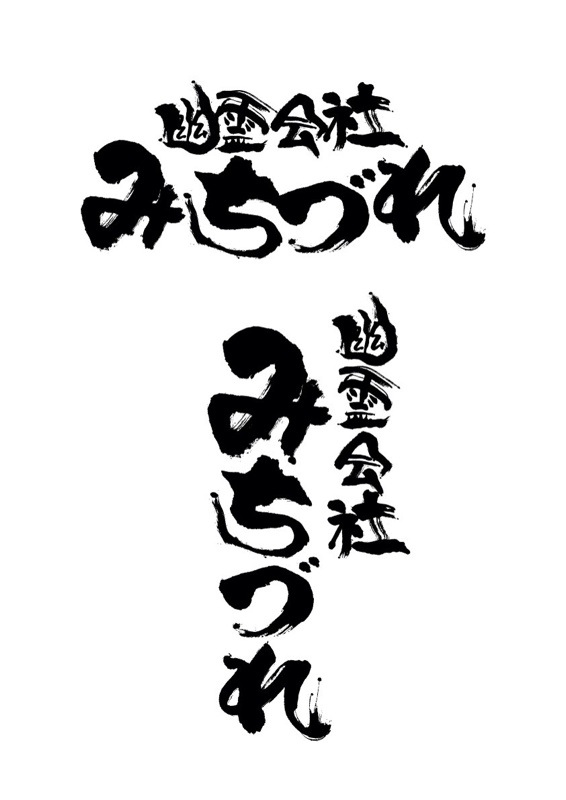 幽霊会社
みちづれ
幽霊会社
みちづれ